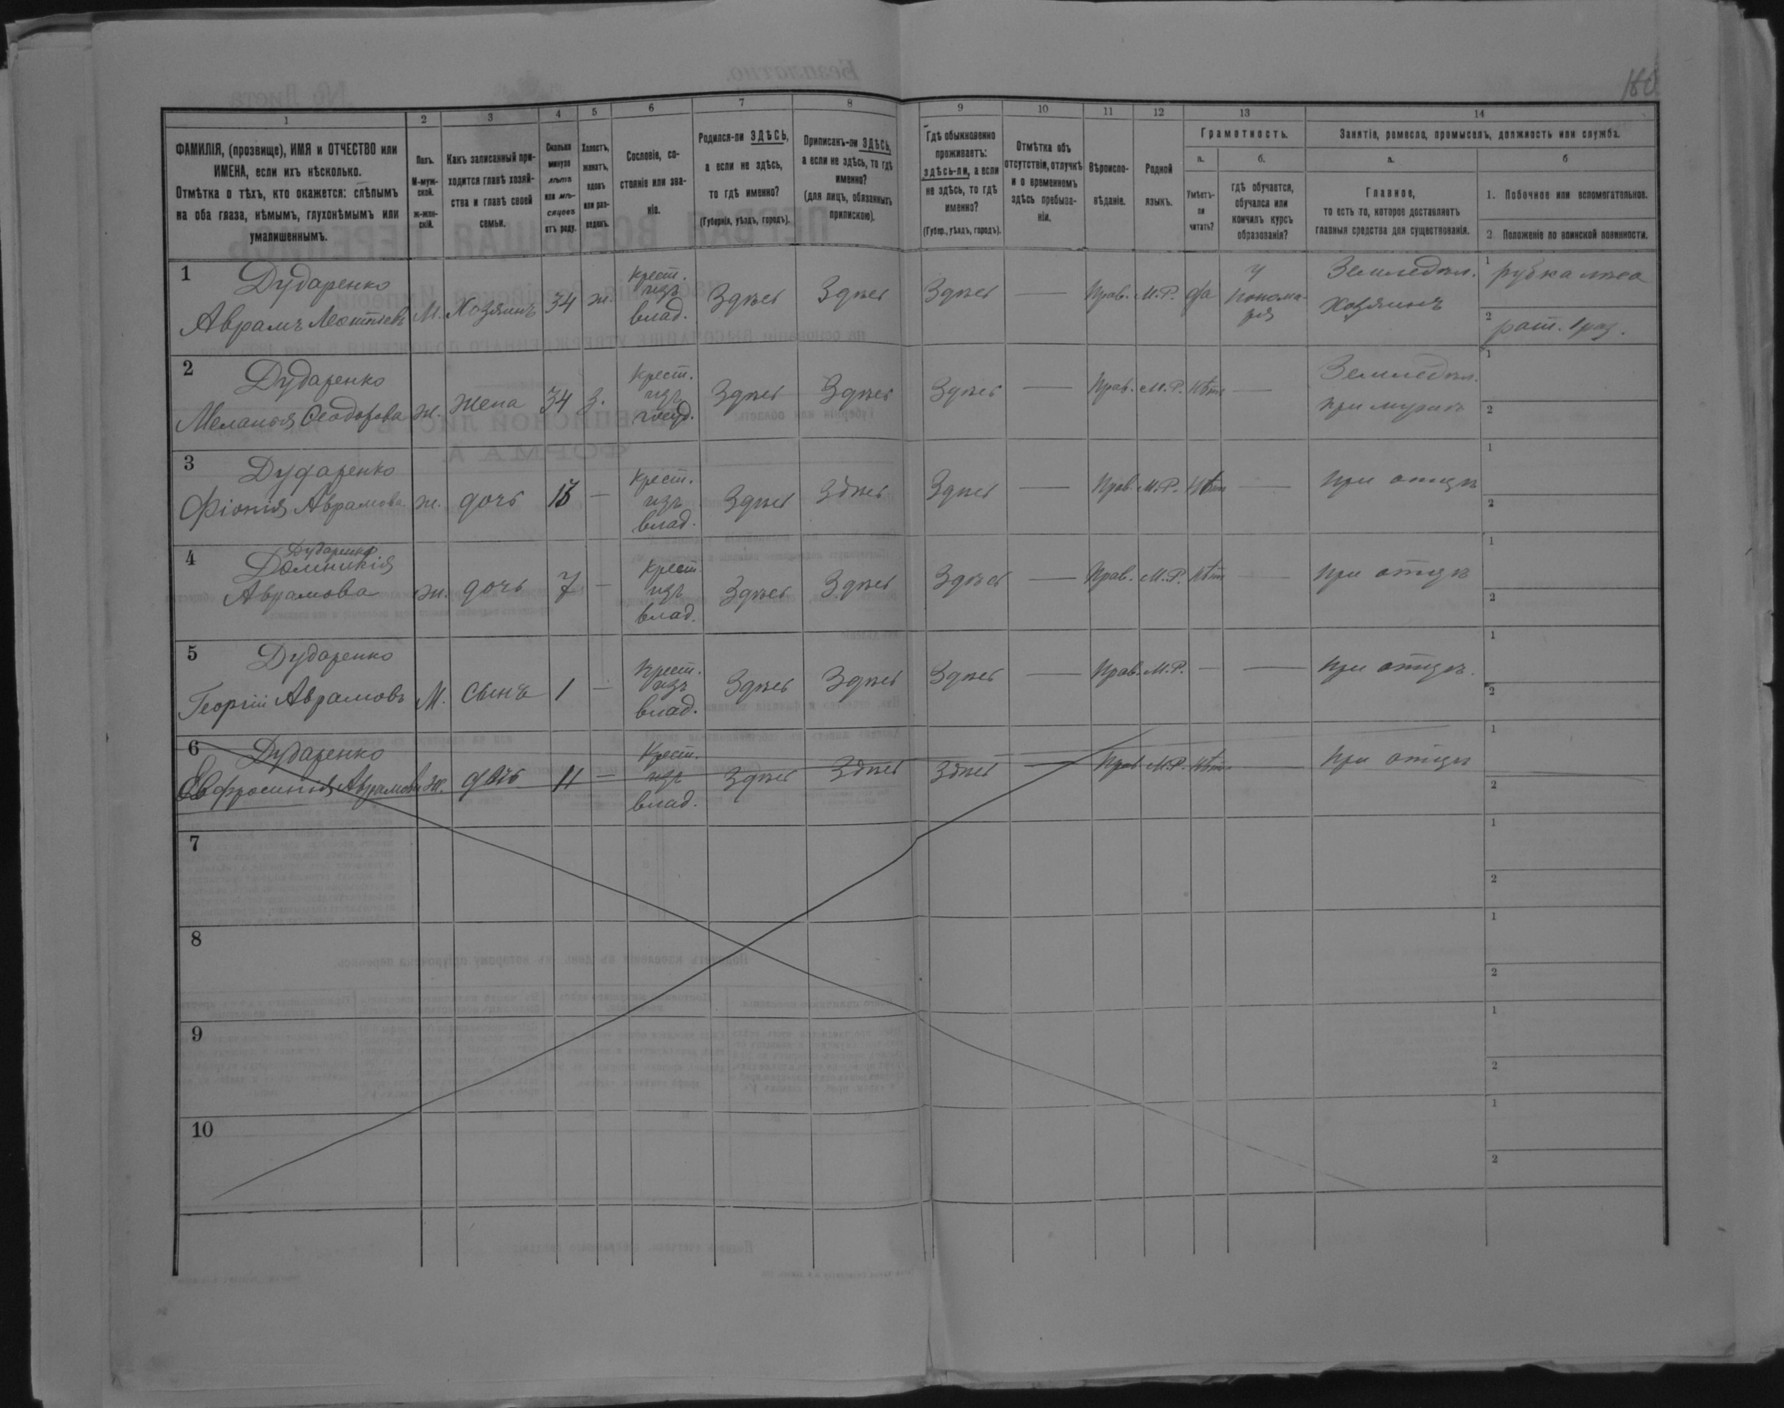 180
1 2 3 4 5 6 7 8 9 10 11 12 13 14
ФАМИЛІЯ, (прозвище), ИМЯ и ОТЧЕСТВО или
ИМЕНА, если ихъ нѣсколько.
Отмѣтка о тѣхъ, кто окажется: слѣпымъ
на оба глаза, нѣмымъ, глухонѣмымъ или
умалишеннымъ.
Полъ.
М-муж-
ской.
ж-жен-
скій.
Какъ записанный при-
ходится главѣ хозяй-
ства и главѣ своей
семьи.
Сколько
минуло
лѣтъ
или мѣ-
сяцевъ
отъ роду.
Холостъ,
женатъ,
вдовъ
или раз-
веденъ.
Сословіе, со-
стояніе или зва-
ніе.
Родился-ли ЗДѢСЬ,
а если не здѣсь,
то гдѣ именно?
(Губернія, уѣздъ, городъ).
Приписанъ-ли ЗДѢСЬ,
а если не здѣсь, то гдѣ
именно?
(для лицъ, обязанныхъ
припискою).
Гдѣ обыкновенно
проживаетъ:
здѣсь-ли, а если
не здѣсь, то гдѣ
именно?
(Губер., уѣздъ, городъ).
Отмѣтка объ
отсутствіи, отлучкѣ
и о временномъ
здѣсь пребыва-
ніи.
Вѣроиспо-
вѣданіе.
Родной
языкъ.
Грамотность.
а.
Умѣетъ-
ли
читать?
б.
гдѣ обучается,
обучался или
кончилъ курсъ
образованія?
Занятіе, ремесло, промыселъ, должность или служба.
а.
Главное,
то есть то, которое доставляетъ
главныя средства для существованія.
б
1. Побочное или вспомогательное.
2. Положеніе по воинской повинности.
1 Дударенко
Аврамъ Леонтіевъ М. Хозяинъ 34 ж. крест. изъ влад. Здѣсь Здѣсь Здѣсь — Прав. М.Р. да у Понома- ря Земледѣл. Хозяинъ 1 рубка лѣса
2 рат. 1 раз.
2 Дударенко
Меланія Ѳеодорова ж. жена 34 з. Крест. изъ Здѣсь Здѣсь Здѣсь — Прав. М.Р. нѣтъ — Земледѣл. при мужѣ 1
2
3 Дударенко
Фіонія Аврамова ж. дочь — Крест. изъ влад. Здѣсь Здѣсь Здѣсь — Прав. М.Р. нѣтъ — при отцѣ 1
2
4 Дударенко
Домникія
Аврамова ж. дочь 7 — Крест. изъ влад. Здѣсь Здѣсь Здѣсь — Прав. М.Р. нѣтъ — при отцѣ 1
2
5 Дударенко
Георгій Аврамовъ М. сынъ 1 — Крест. изъ влад. Здѣсь Здѣсь Здѣсь — Прав. М.Р. — — при отцѣ. 1
2
6 Дударенко
Евфросинія Аврамова ж. дочь 11 — Крест. изъ влад. Здѣсь Здѣсь Здѣсь — Прав. М.Р. нѣтъ — при отцѣ 1
2
7 1
2
8 1
2
9 1
2
10 1
2